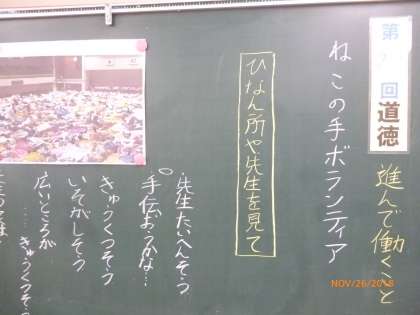 第 回 道徳
進んで働くこと
ねこの手ボランティア
ひなん所や先生を見て
・先生たいへんそう
手伝おうかな…
きゅうくつそう
いそがしそう
広いところが
……きゅうくつそ
NOV/26/2018